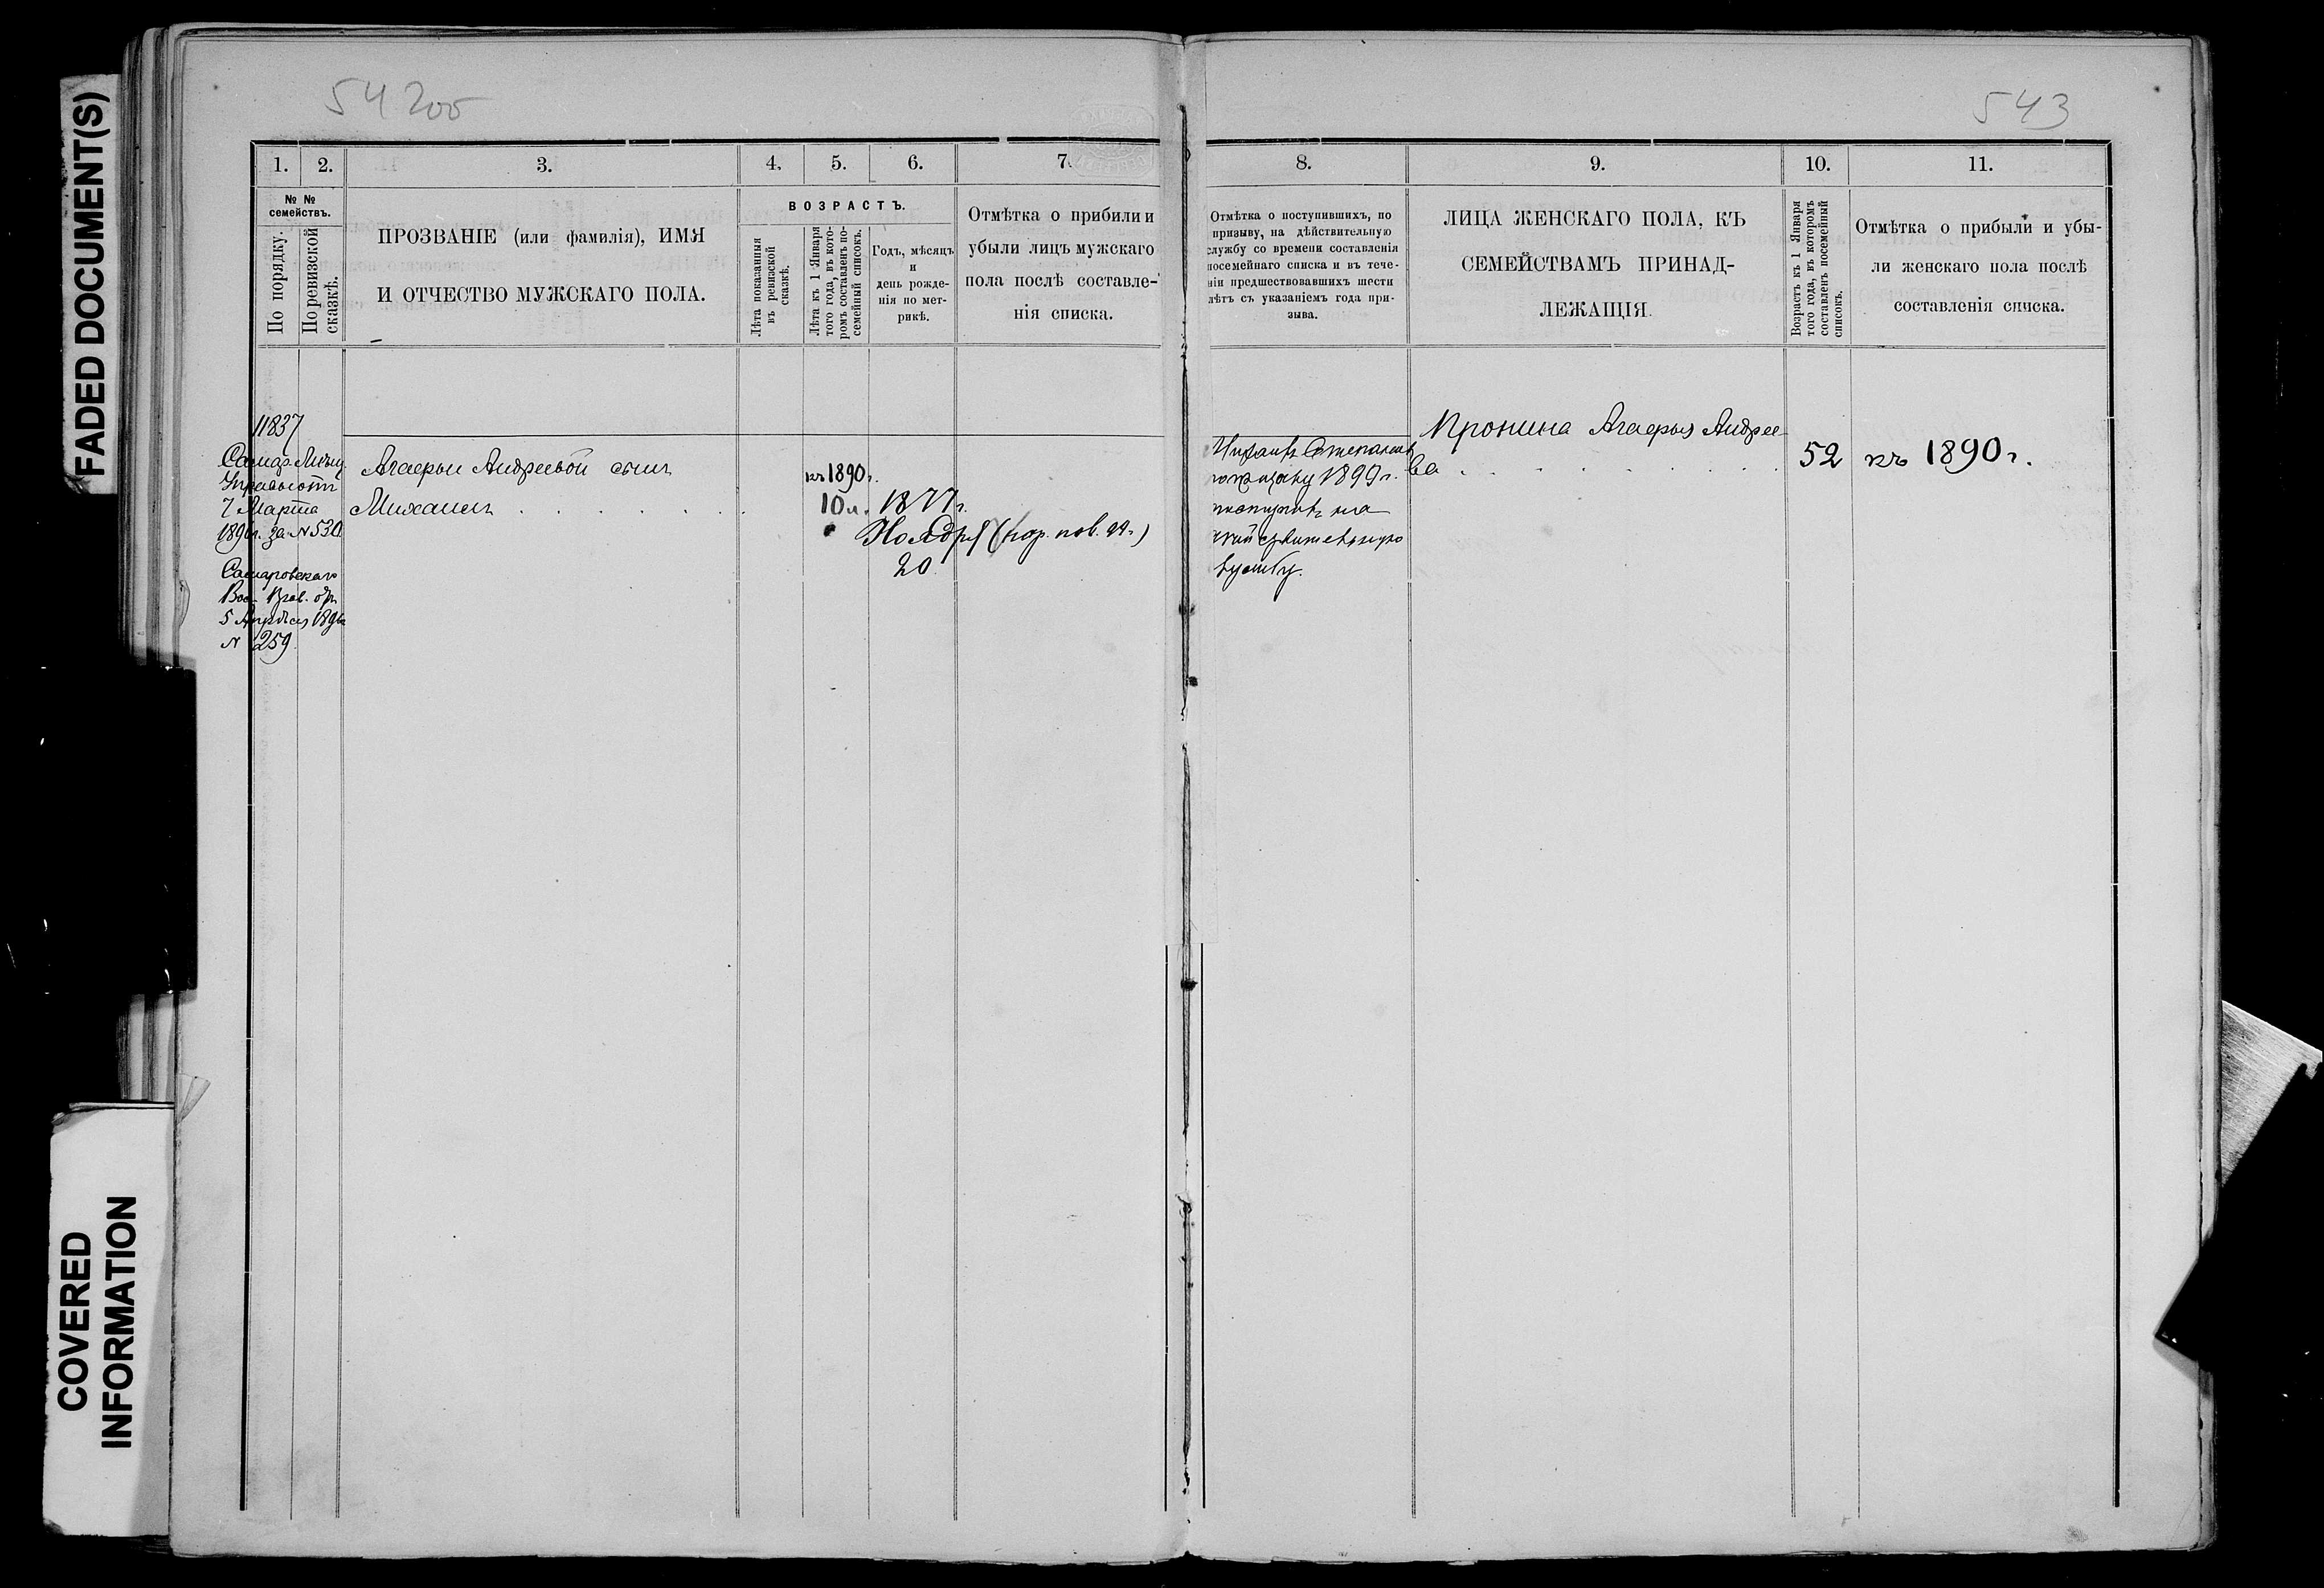 FADED DOCUMENT(S)
COVERED
INFORMATION
54 200
543
1.
2.
3.
4.
5.
6.
7.
8.
9.
10.
11.
№ №
семействъ.
По порядку.
По ревизской
сказкѣ.
ПРОЗВАНІЕ (или фамилія), ИМЯ
И ОТЧЕСТВО МУЖСКАГО ПОЛА.
ВОЗРАСТЪ.
Лѣта показанныя
въ ревизской
сказкѣ.
Лѣта къ 1 Января
того года, въ кото-
ромъ составленъ по-
семейный списокъ.
Годъ, мѣсяцъ
и
день рожде-
нія по мет-
рикѣ.
Отмѣтка о прибыли и
убыли лицъ мужскаго
пола послѣ составле-
нія списка.
Отмѣтка о поступившихъ, по
призыву, на дѣйствительную
службу со времени составленія
посемейнаго списка и въ тече-
ніи предшествовавшихъ шести
лѣтъ съ указаніемъ года при-
зыва.
ЛИЦА ЖЕНСКАГО ПОЛА, КЪ
СЕМЕЙСТВАМЪ ПРИНАД-
ЛЕЖАЩІЯ.
Возрастъ къ 1 Января
того года, въ которомъ
составленъ посемейный
списокъ.
Отмѣтка о прибыли и убы-
ли женскаго пола послѣ
составленія списка.
11837
Самар.
7 Марта
189 г. за № 530
5 Апрѣля 189
№ 259
Агафьи Андреевой сынъ
Михаилъ
къ 1890 г.
10 л.
1877 г.
Ноября
20
Михаилъ Степановъ
по призыву 1899 г.
поступилъ на
дѣйствительную
службу.
Пронина Агафья Андрее-
ва
52
къ 1890 г.